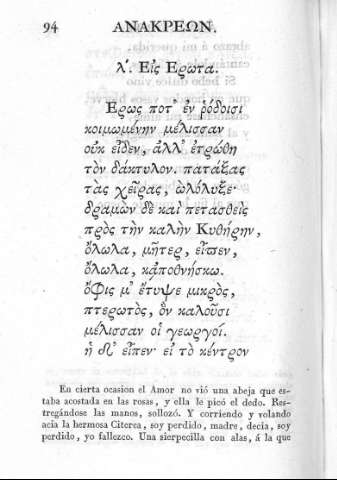 94 ΑΝΑΚΡΕΩΝ.
λ'. Εἰς Ερωτα.
Ερως ποτ' ἐν ῥόδοισι
κοιμωμένην μέλισσαν
οὐκ εἶδεν, ἀλλ' ἐτρώθη
τὸν δάκτυλον. πατάξας
τὰς χεῖρας, ὠλόλυξε·
δραμὼν δὲ καὶ πετασθεὶς
πρὸς τὴν καλὴν Κυθήρην,
ὄλωλα, μῆτερ, εἶπεν,
ὄλωλα, κἀποθνήσκω.
ὄφις μ' ἔτυψε μικρὸς,
πτερωτὸς, ὃν καλοῦσι
μέλισσαν οἱ γεωργοί.
ἡ δ' εἶπεν· εἰ τὸ κέντρον
En cierta ocasion el Amor no vió una abeja que es-
taba acostada en las rosas, y ella le picó el dedo. Res-
tregándose las manos, sollozó. Y corriendo y volando
acia la hermosa Citerea, soy perdido, madre, decia, soy
perdido, yo fallezco. Una sierpecilla con alas, á la que